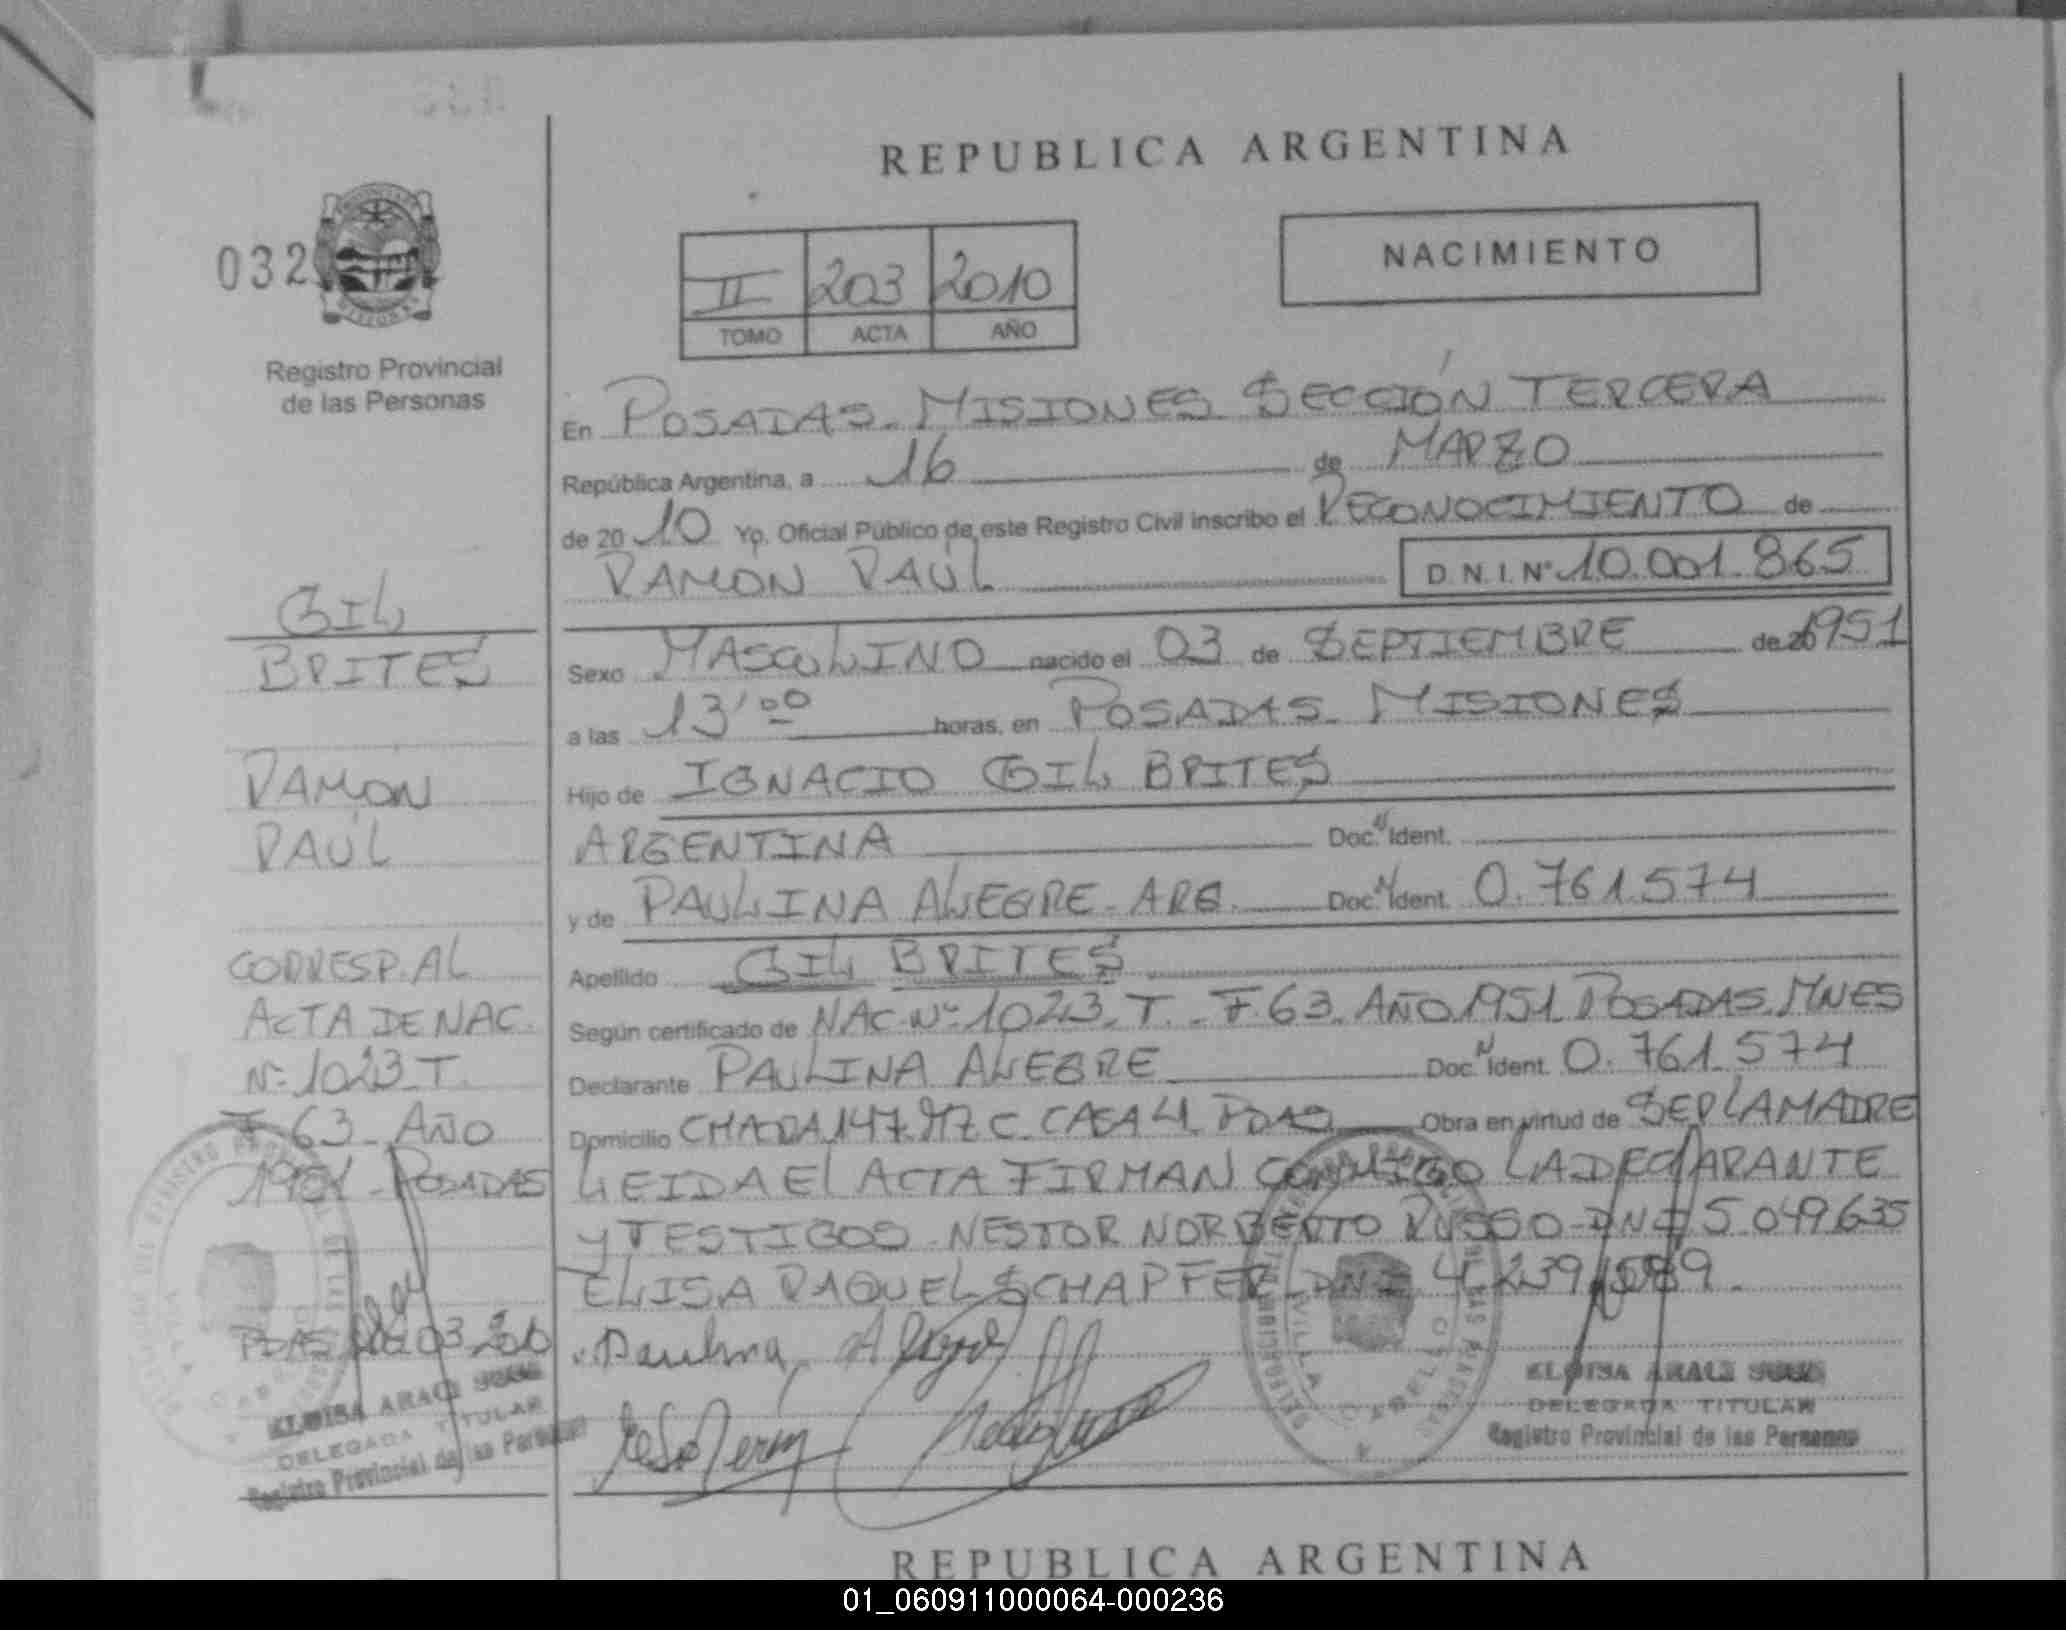 REPUBLICA ARGENTINA
032
Registro Provincial
de las Personas
II 203 2010
TOMO ACTA AÑO
NACIMIENTO
En POSADAS. MISIONES SECCIÓN TERCERA
República Argentina, a 16 de MARZO
de 20 10 Yo, Oficial Público de este Registro Civil inscribo el RECONOCIMIENTO de
RAMON RAÚL D.N.I. Nº 10.001.865
GIL
BRITES
RAMON
RAÚL
CORRESP. AL
ACTA DE NAC.
Nº 1023 T.
F 63 AÑO
1951 POSADAS
Sexo MASCULINO nacido el 03 de SEPTIEMBRE de 20 1951
a las 13'00 horas, en POSADAS MISIONES
Hijo de IGNACIO GIL BRITES
ARGENTINA Doc. N Ident.
y de PAULINA ALEGRE ARG. Doc. N Ident. 0.761.574
Apellido GIL BRITES
Según certificado de NAC Nº 1023 T. F. 63 AÑO 1951 POSADAS MNES
Declarante PAULINA ALEGRE Doc. N Ident. 0.761.574
Domicilio CHACRA 147 MZ C CASA 4 PDAS Obra en virtud de SER LA MADRE
LEIDA EL ACTA FIRMAN CONMIGO LA DECLARANTE
y TESTIGOS NESTOR NORBERTO RUSSO DNI 5.049.635
ELISA RAQUEL SCHAPFER DNI 4.239.
Paulina Alegre
PDAS 03 2010
ELOISA ARACI
DELEGADA TITULAR
Registro Provincial de las Personas
ELOISA ARACI
DELEGADA TITULAR
Registro Provincial de las Personas
VILLA CABELLO
REPUBLICA ARGENTINA
01_060911000064-000236